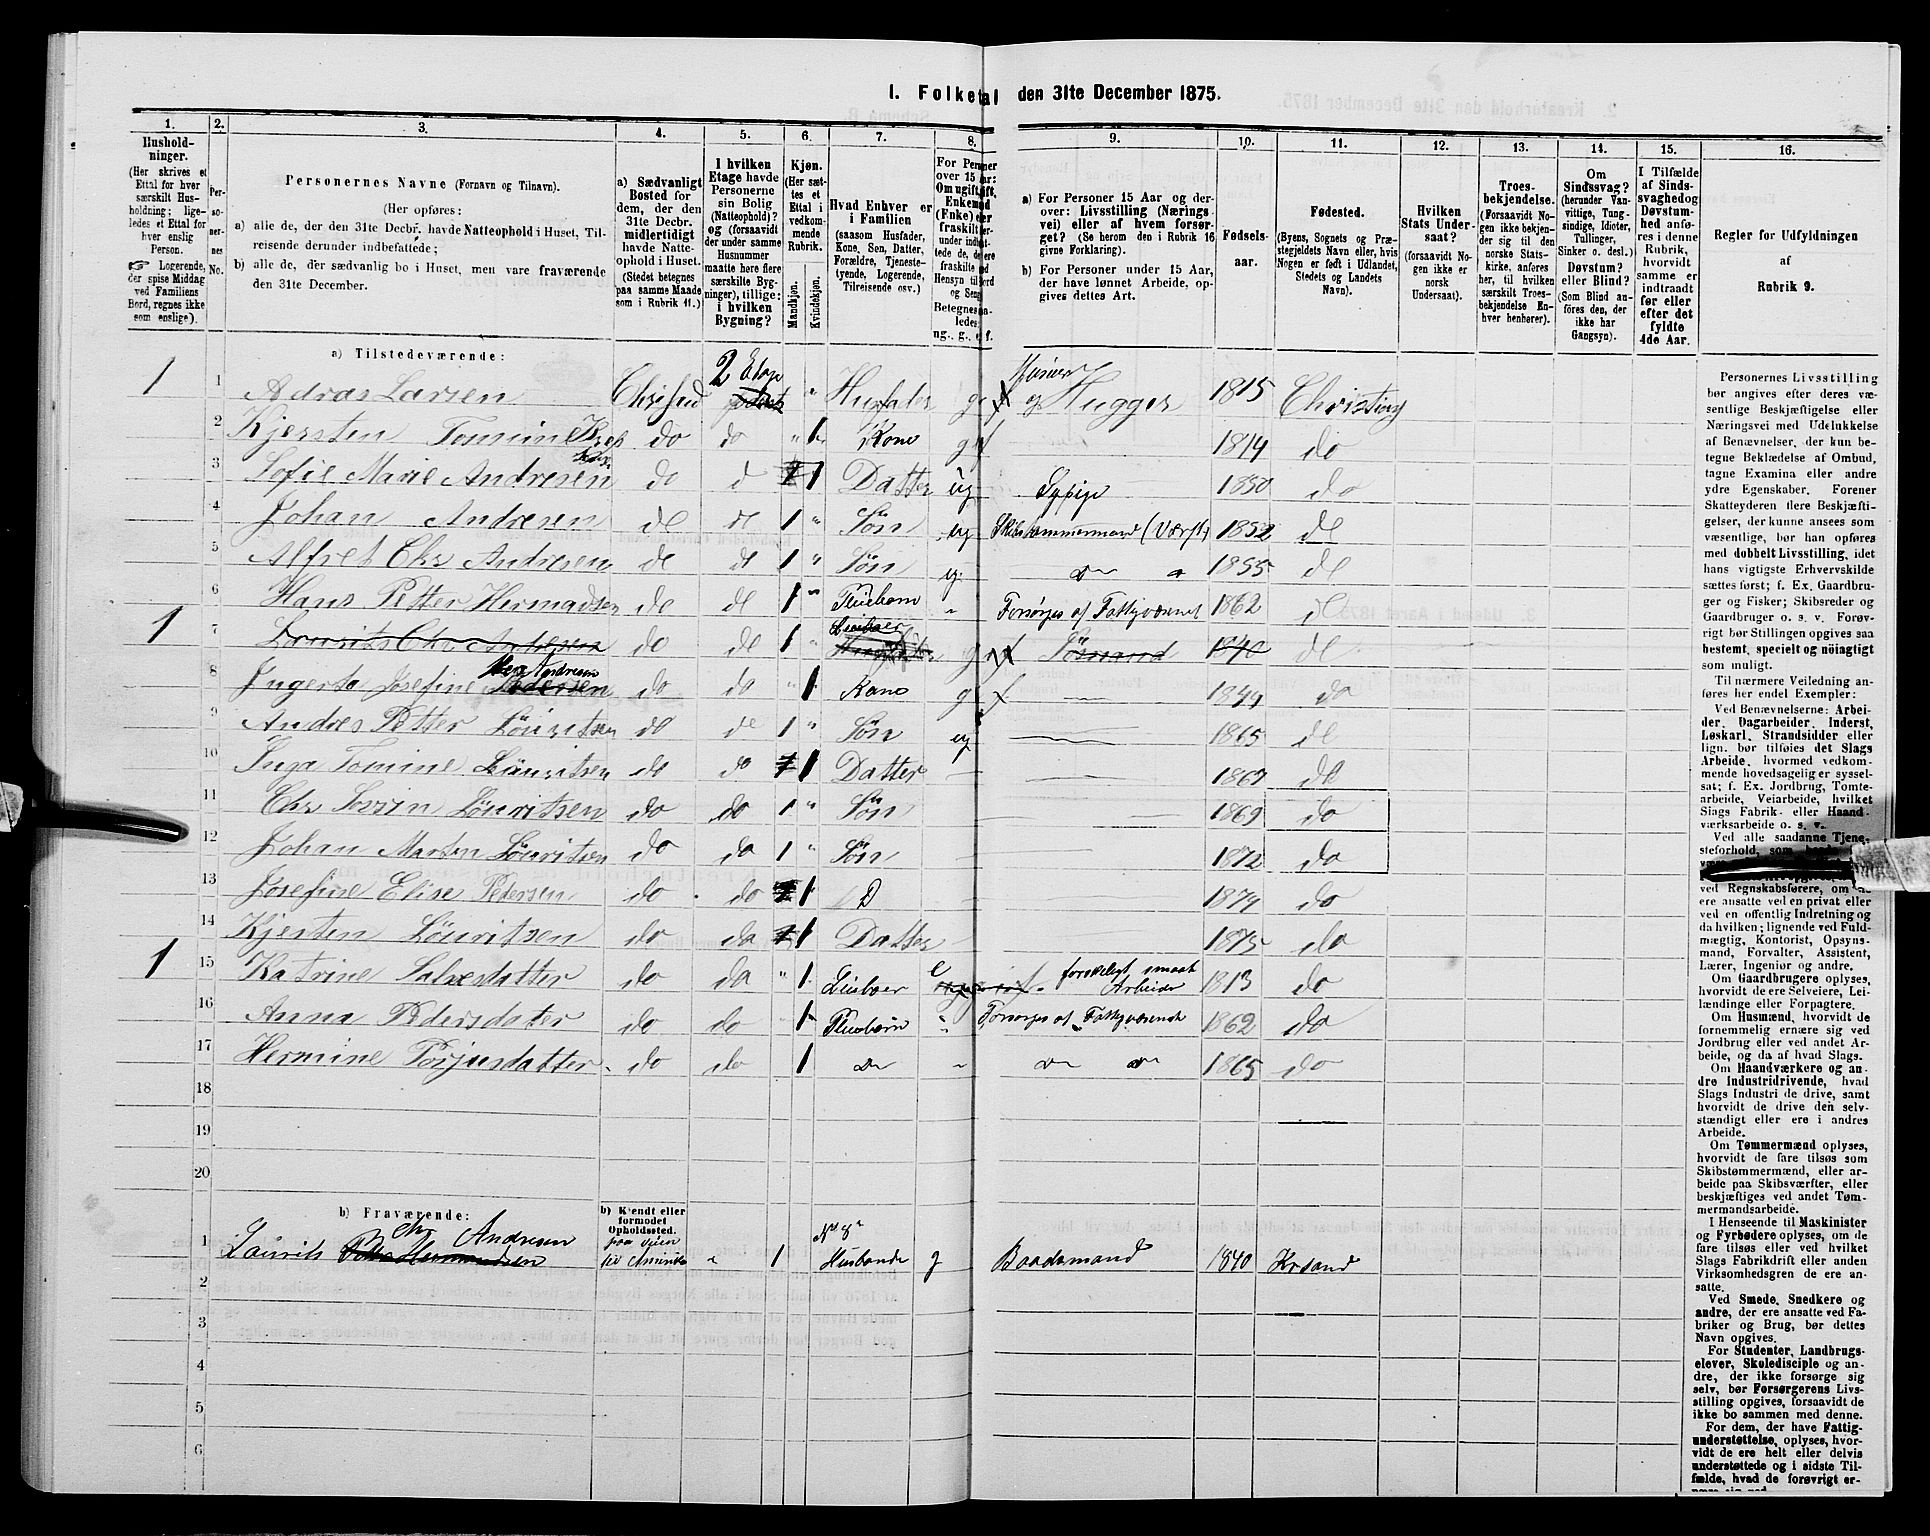 I. Folketal den 31te December 1875.
1. 2. 3. 4. 5. 6. 7. 8. 9. 10. 11. 12. 13. 14. 15. 16.
Hushold-
ninger.
(Her skrives et
Ettal for hver
særskilt Hus-
holdning; lige-
ledes et Ettal for
hver enslig
Person.
☞ Logerende,
der spise Middag
ved Familiens
Bord, regnes ikke
som enslige).
Per-
so-
ner-
nes
No.
Personernes Navne (Fornavn og Tilnavn).
(Her opføres:
a) alle de, der den 31te Decbr. havde Natteophold i Huset, Til-
reisende derunder indbefattede;
b) alle de, der sædvanlig bo i Huset, men vare fraværende
den 31te December.
a) Sædvanligt
Bosted for
dem, der den
31te Decbr.
midlertidigt
havde Natte-
ophold i Huset.
(Stedet betegnes
paa samme Maade
som i Rubrik 11.)
I hvilken
Etage havde
Personerne
sin Bolig
(Natteophold)?
og (forsaavidt
der under samme
Husnummer
maatte høre flere
særskilte Byg-
ninger), tillige:
i hvilken
Bygning?
Kjøn.
(Her sæt-
tes et
Ettal i
vedkom-
mende
Rubrik.
Mandkjøn.
Kvindekjøn.
Hvad Enhver er
i Familien
(saasom Husfader,
Kone, Søn, Datter,
Forældre, Tjeneste-
tyende, Logerende,
Tilreisende osv.)
a) For Personer 15 Aar og der-
over: Livsstilling (Nærings-
vei) eller af hvem forsør-
get? (Se herom den i Rubrik 16
givne Forklaring).
b) For Personer under 15 Aar,
der have lønnet Arbeide, op-
gives dettes Art.
Fødsels-
aar.
Fødested.
(Byens, Sognets og Præ-
stegjeldets Navn eller, hvis
Nogen er født i Udlandet,
Stedets og Landets
Navn).
Hvilken
Stats Under-
saat?
(forsaavidt No-
gen ikke er
norsk
Undersaat).
Troes-
bekjendelse.
(Forsaavidt No-
gen ikke bekjen-
der sig til den
norske Stats-
kirke, anføres
her, til hvilken
særskilt Troes-
bekjendelse En-
hver henhører).
Om
Sindssvag?
(herunder Van-
vittige, Tung-
sindige, Idioter,
Tullinger,
Sinker o. desl.)
Døvstum?
eller Blind?
(Som Blind an-
føres den, der
ikke har
Gangsyn).
I Tilfælde
af Sinds-
svaghed og
Døvstum-
hed anfø-
res i denne
Rubrik,
hvorvidt
samme er
indtraadt
før eller
efter det
fyldte
4de Aar.
Regler for Udfyldningen
af
Rubrik 9.
a) Tilstedeværende:
1 1 Adras Larsen 2 Etage Husfader g Hugger 1815
2 Kjersten Tomine do do 1 Kone g 1814 do
3 Sofie Marie Andresen do d 1 Datter ug Sypige 1850 do
4 Johan Andresen de de 1 " Søn ug Skibstømmermand (Værft) 1852 de
5 Alfret Chr Andresen de de 1 " Søn ug 1855 de
6 Hans Petter Hermadsen de de 1 Pleiebarn " Forsørges af Fattigvæsenet 1862 de
1 7 Lauritz Chr Andresen do de 1 " g 1840 de
8 Ingerta Josefine Andresen do do " 1 Kone g 1844 do
9 Andres Petter Louritsen do de 1 " Søn ug 1865 de
10 Inga Tomine Louritsen do do 1 Datter 1867 do
11 Chr Sovrin Louritsen do do 1 " Søn 1869 do
12 Johan Marten Louritsen do do 1 " Søn 1872 do
13 Josefine Elise Pedersen do do 1 D 1874 do
14 Kjersten Louritsen do do 1 Datter 1875 do
1 15 Katrine Salvesdatter do do " 1 e smaat Arbeide 1813 do
16 Anna Pedersdatter do do " 1 Pleiebørn " Forsørges af Fattigvæsenet 1862 do
17 Hermine Torjusdatter do do 1 " 1865 do
18
19
20
b) Fraværende:
b) Kjendt eller
formodet
Opholdssted.
1 Laurits Chr Andresen paa Veien til Amerika " 1 Husbonde g Baadsmand 1840 Krsand
2
3
4
5
6
Personernes Livsstilling
bør angives efter deres væ-
sentlige Beskjæftigelse eller
Næringsvei med Udelukkelse
af Benævnelser, der kun be-
tegne Beklædelse af Ombud,
tagne Examina eller andre
ydre Egenskaber. Forener
Skatteyderen flere Beskjæfti-
gelser, der kunne ansees som
væsentlige, bør han opføres
med dobbelt Livsstilling, idet
hans vigtigste Erhvervskilde
sættes først; f. Ex. Gaardbru-
ger og Fisker; Skibsreder og
Gaardbruger o. s. v. Forøv-
rigt bør Stillingen opgives saa
bestemt, specielt og nöiagtigt
som muligt.
Til nærmere Veiledning an-
føres her endel Exempler:
Ved Benævnelserne: Arbei-
der, Dagarbeider, Inderst,
Løskarl, Strandsidder eller
lign. bør tilføies det Slags
Arbeide, hvormed vedkom-
mende hovedsagelig er syssel-
sat; f. Ex. Jordbrug, Tomte-
arbeide, Veiarbeide, hvilket
Slags Fabrik- eller Haand-
værksarbeide o. s. v.
Ved alle saadanne Tjene-
steforhold, som
ved Regnskabsførere, om
ere ansatte ved en privat eller
ved en offentlig Indretning og
da hvilken; ligende ved Fuld-
mægtig, Kontorist, Opsyns-
mand, Forvalter, Assistent,
Lærer, Ingeniør og andre.
Om Gaardbrugere oplyses,
hvorvidt de ere Selveiere, Lei-
lændinge eller Forpagtere.
Om Husmænd, hvorvidt de
fornemmelig ernære sig ved
Jordbrug eller ved andet Ar-
beide, og da af hvad Slags.
Om Haandværkere og an-
dre Industridrivende, hvad
Slags Industri de drive, samt
hvorvidt de drive den selv-
stændigt eller ere i andres
Arbeide.
Om Tømmermænd oplyses,
hvorvidt de fare tilsøs som
Skibstømmermænd, eller ar-
beide paa Skibsværfter, eller
beskjæftiges ved andet Tøm-
mermandsarbeide.
I Henseende til Maskinister
og Fyrbødere oplyses, om de
fare tilsøs eller ved hvilket
Slags Fabrikdrift eller anden
Virksomhedsgren de ere an-
satte.
Ved Smede, Snedkere og
andre, der ere ansatte ved Fa-
briker og Brug, bør dettes
Navn opgives.
For Studenter, Landbrugs-
elever, Skoledisciple og an-
dre, der ikke forsørge sig
selv, bør Forsørgerens Livs-
stilling opgives, forsaavidt de
ikke bo sammen med denne.
For dem, der have Fattig-
understøttelse, oplyses, hvor-
vidt de ere helt eller delvis
understøttede og i sidste Til-
fælde, hvad de forøvrigt er-